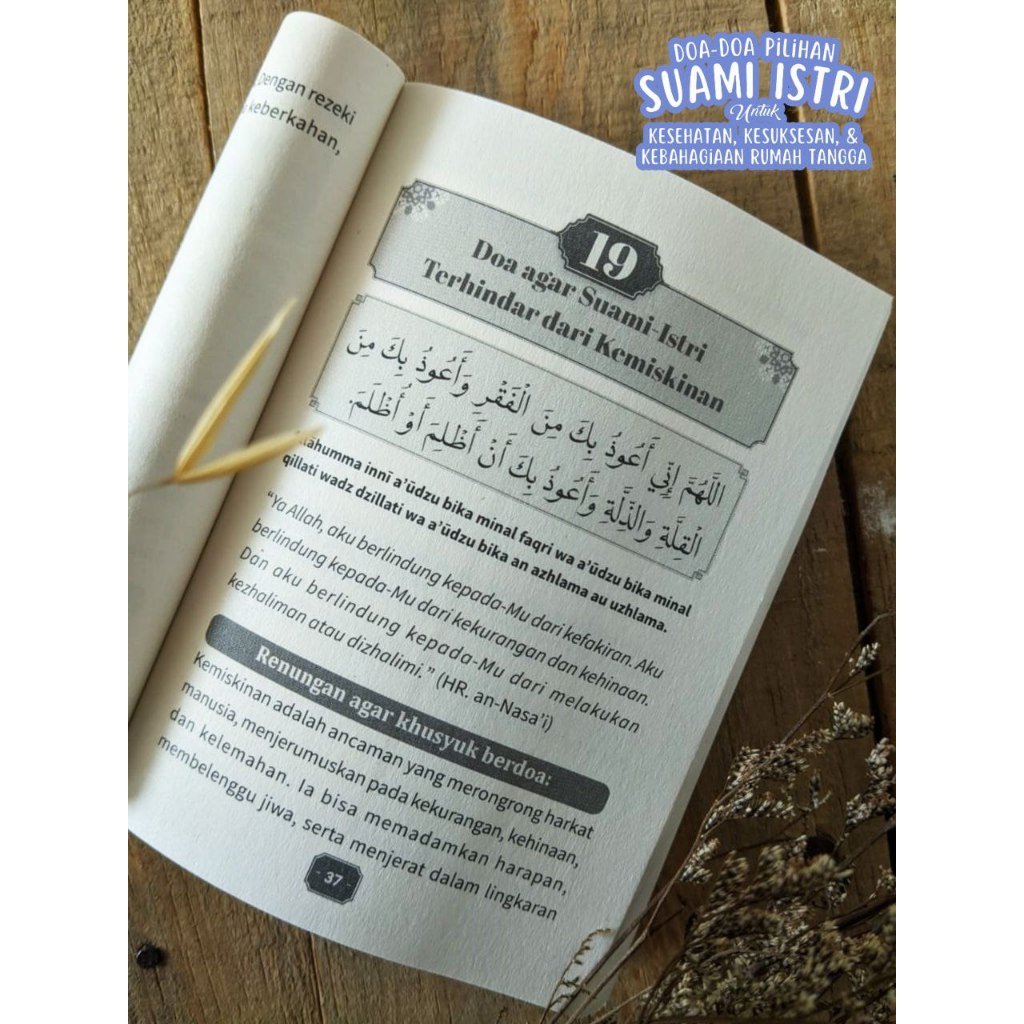 DOA-DOA PILIHAN
SUAMI ISTRI
Untuk
KESEHATAN, KESUKSESAN, &
KEBAHAGIAAN RUMAH TANGGA
Dengan rezeki
keberkahan,
19
Doa agar Suami-Istri
Terhindar dari Kemiskinan
اللَّهُمَّ إِنِّي أَعُوذُ بِكَ مِنَ الْفَقْرِ وَأَعُوذُ بِكَ مِنَ
الْقِلَّةِ وَالذِّلَّةِ وَأَعُوذُ بِكَ أَنْ أَظْلِمَ أَوْ أُظْلَمَ.
innī a'ūdzu bika minal faqri wa a'ūdzu bika minal
qillati wadz dzillati wa a'ūdzu bika an azhlama au uzhlama.
"Ya Allah, aku berlindung kepada-Mu dari kefakiran. Aku
berlindung kepada-Mu dari kekurangan dan kehinaan.
Dan aku berlindung kepada-Mu dari melakukan
kezhaliman atau dizhalimi." (HR. an-Nasa'i)
Renungan agar khusyuk berdoa:
Kemiskinan adalah ancaman yang merongrong harkat
manusia, menjerumuskan pada kekurangan, kehinaan,
dan kelemahan. Ia bisa memadamkan harapan,
membelenggu jiwa, serta menjerat dalam lingkaran
37